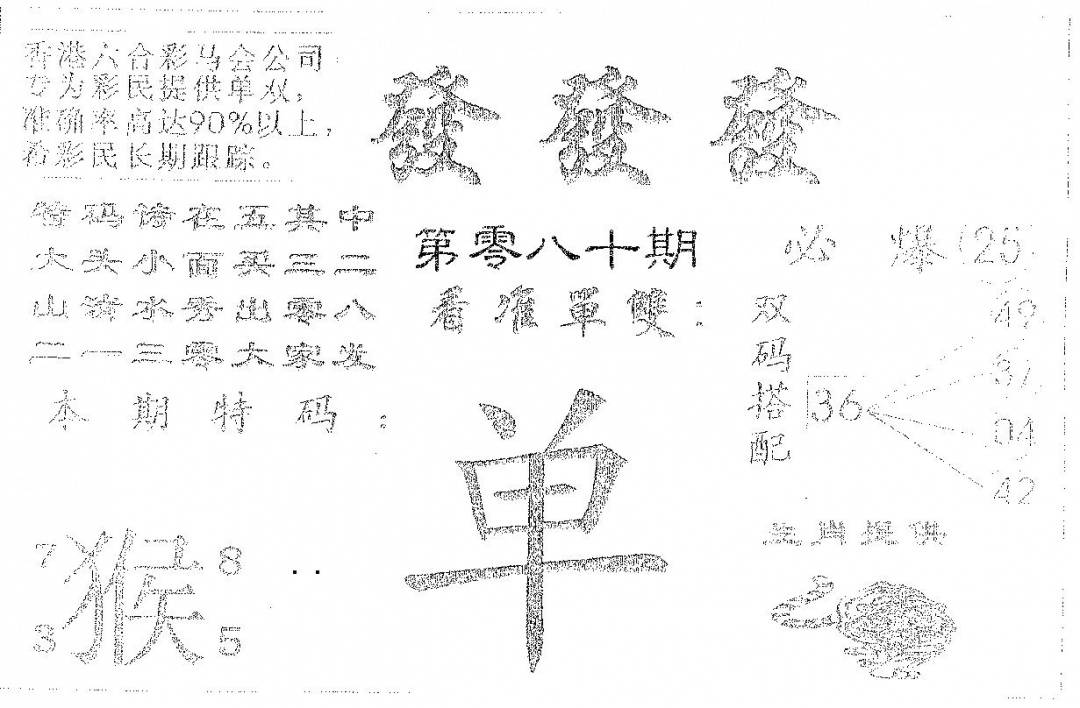 香港六合彩马会公司
专为彩民提供单双，
准确率高达90%以上，
希彩民长期跟踪。
發發發
特码请在五其中
大头小面买三二
山清水秀出零八
二一三零大家发
本期特码：
第零八十期
看准單雙：
单
必爆(25)
双码搭配
36
49
37
04
42
7 猴 8
3 5
生肖提供